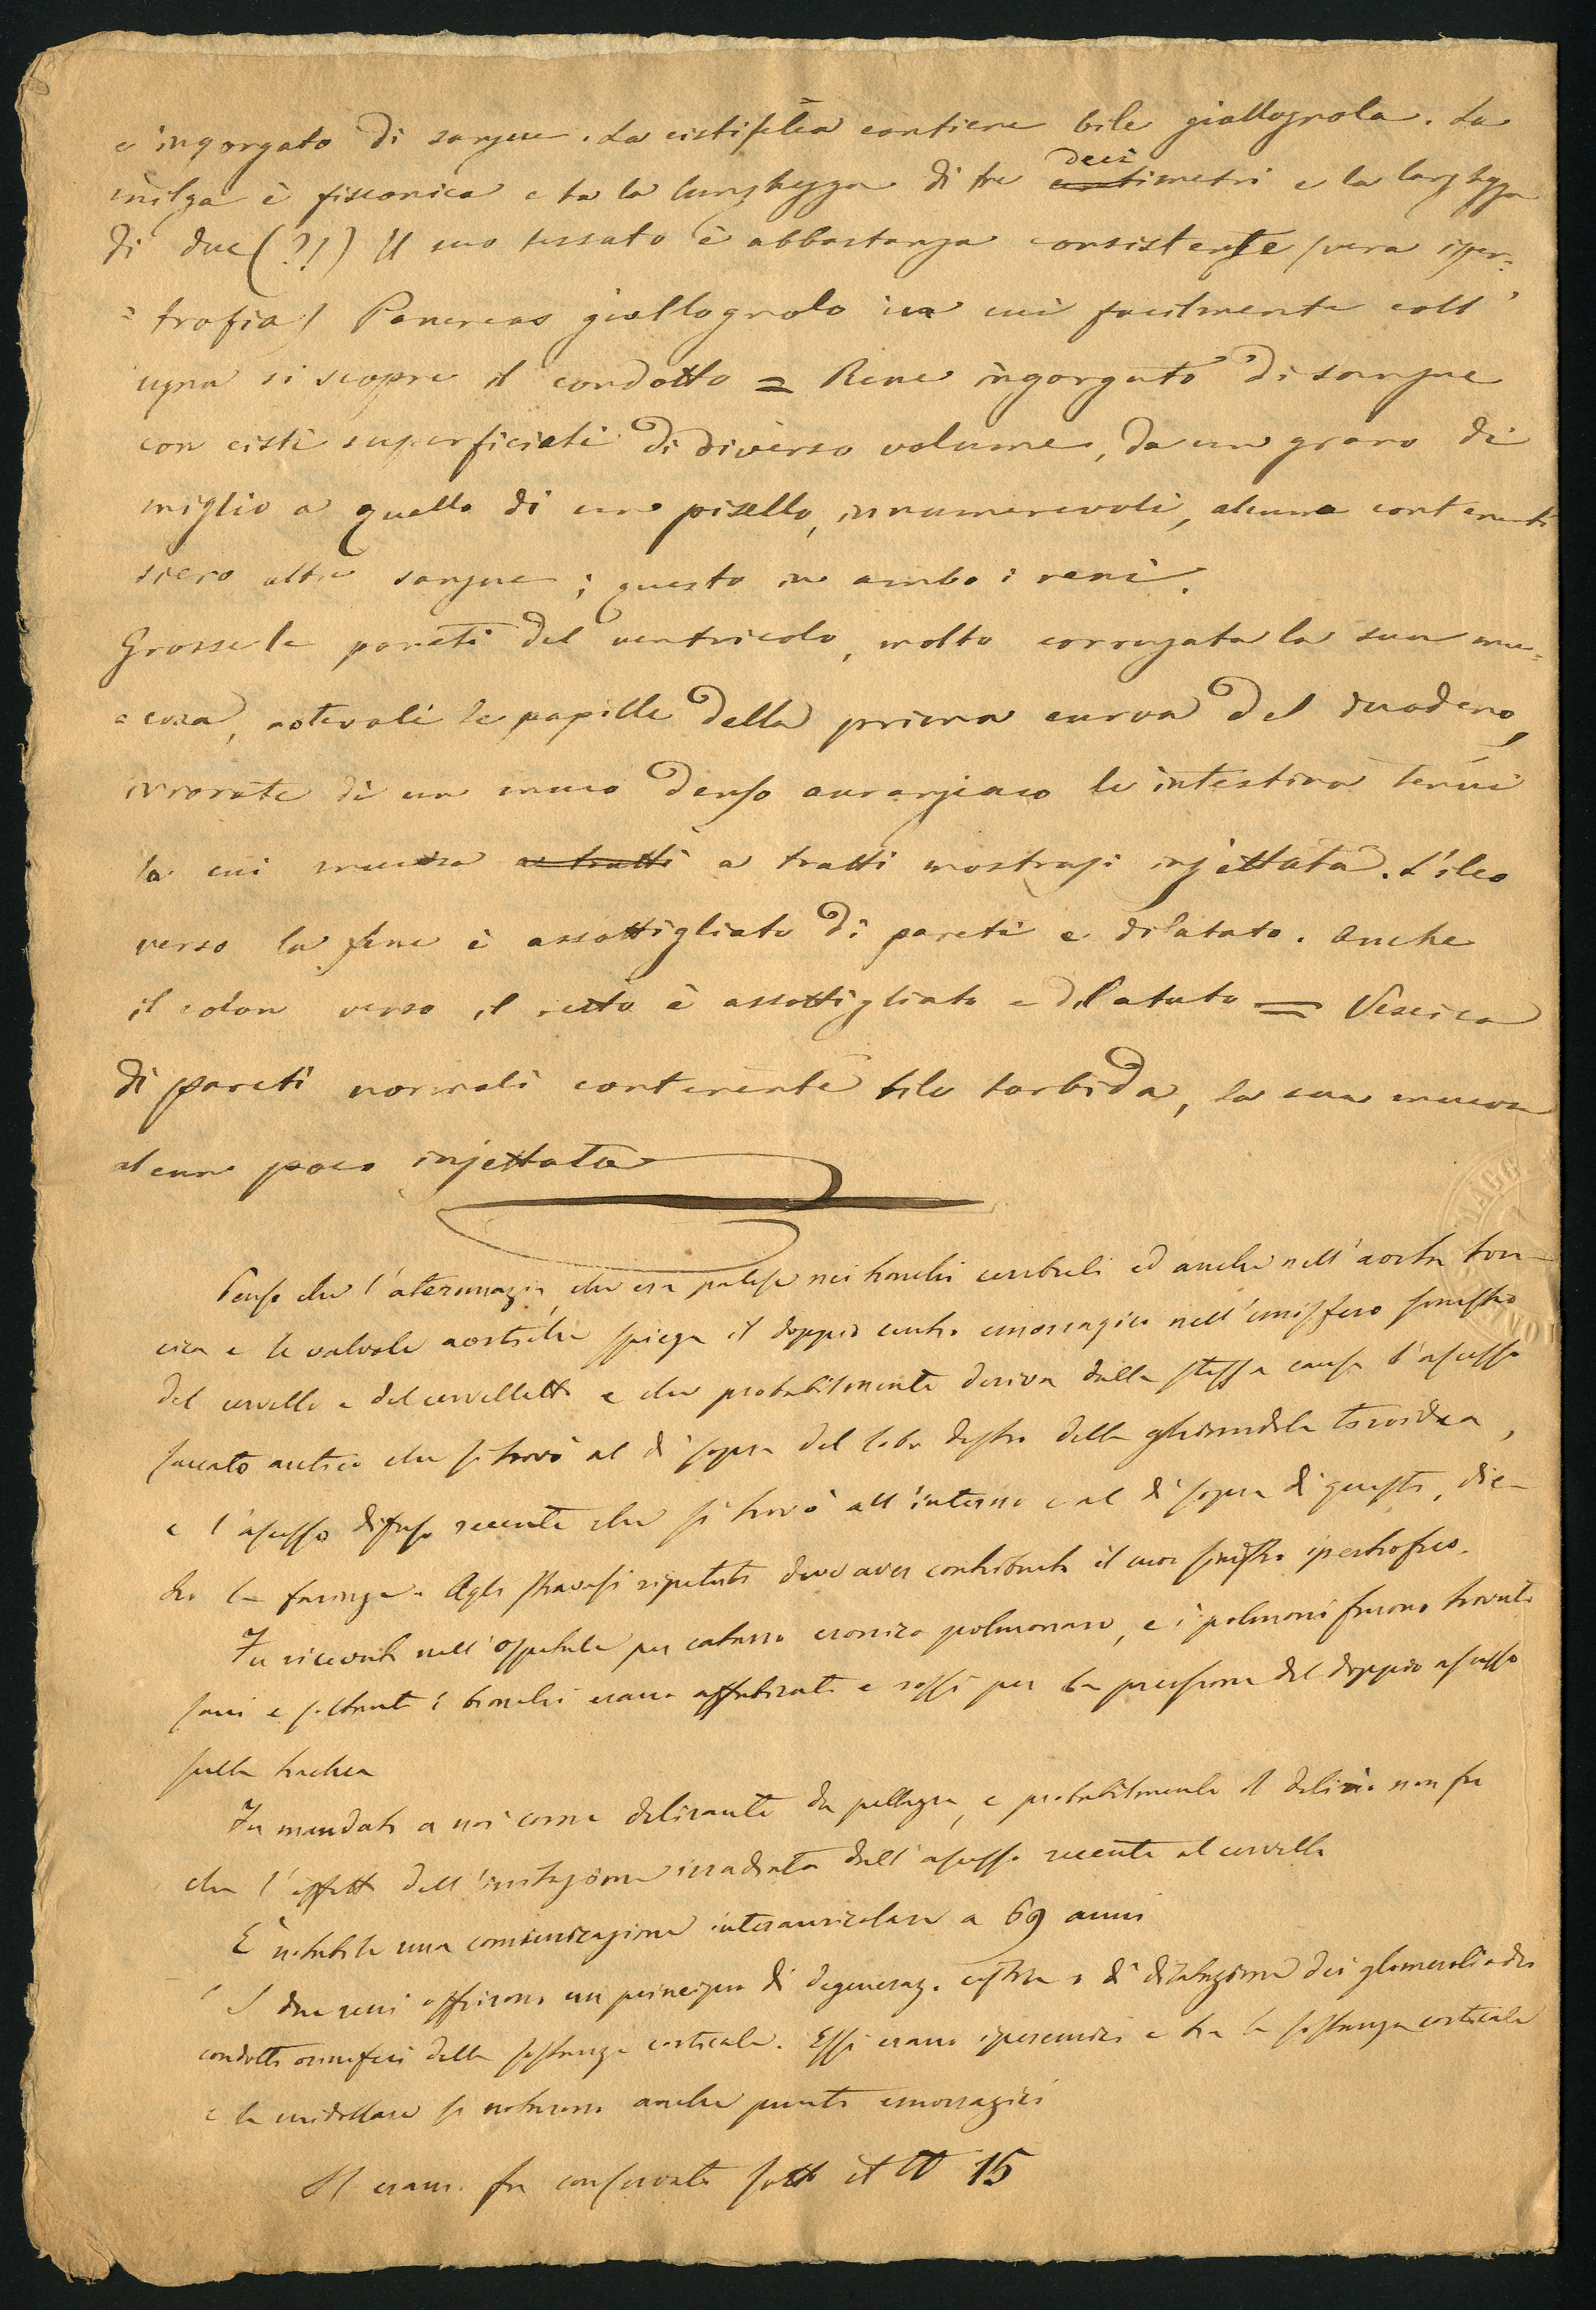 e ingorgato di sangue. La cistifelea contiene bile giallognola. La
milza è fisconica e ha la lunghezza di tre deci centimetri e la larghezza
di due (?!) Il suo tessuto è abbastanza consistente (vera iper=
=trofia) Pancreas giallognolo in cui facilmente coll'
ugna si scopre il condotto = Rene ingorgato di sangue
con cisti superficiali di diverso volume, da un grano di
miglio a quello di un pisello, innumerevoli, alcune contenenti
siero altre sangue; questo in ambo i reni.
Grosse le pareti del ventricolo, molto corrugata la sua mu=
=cosa, notevoli le papille della prima curva del duodeno,
irrorate di un muco denso auranciaco le intestina tenui
la cui mucosa a tratti a tratti mostrasi injettata. L'ileo
verso la fine è assottigliato di pareti e dilatato. Anche
il colon verso il retto è assottigliato e dilatato = Vescica
di pareti normali contenente bile torbida, la sua mucosa
alcun poco injettata
Penso che l'ateromazia che era palese nei tronchi cerebrali ed anche nell'aorta tora-
cica e le valvole aortiche spiega il doppio centro emorragico nell'emisfero sinistro
del cervello e del cervelletto e che probabilmente deriva dalla stessa causa l'ascesso
saccato antico che si trovò al di sopra del lobo destro della ghiandola tiroidea,
e l'ascesso difuso recente che si trovò all'interno e al di sopra di questo, die-
tro la faringe. Agli stravasi ripetuti deve aver contribuito il cuor sinistro ipertrofico.
Fu ricevuto nell'Ospitale per catarro cronico polmonare, e i polmoni furono trovati
sani e soltanto i bronchi erano affoticati e rossi per la pressione del doppio ascesso
sulla trachea
Fu mandato a noi come delirante da pellagra, e probabilmente il delirio non fu
che l'effetto dell'irritazione irradiata dall'ascesso recente al cervello
È notabile una comunicazione interauricolare a 69 anni
I due reni offrirono un principio di degeneraz. cistica o di dilatazione dei glomeruli o dei
condotti oriniferi della sostanza corticale. Essi erano iperemici e tra la sostanza corticale
e la midollare si notarono anche punti emorragici
Il cranio fu conservato sotto il N 15